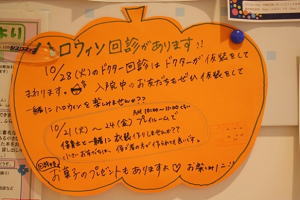 ハロウィン回診があります!!
10/28(火)のドクター回診はドクターが仮装をして
まわります。入院中のお友だちもぜひ仮装をして
一緒にハロウィンを楽しみませんか??
AM 10:00~11:00くらい
10/21(火)~24(金)プレイルームで
保育士と一緒に衣装作りしませんか??
お菓子のプレゼントもありますよ♡ お楽しみに!!